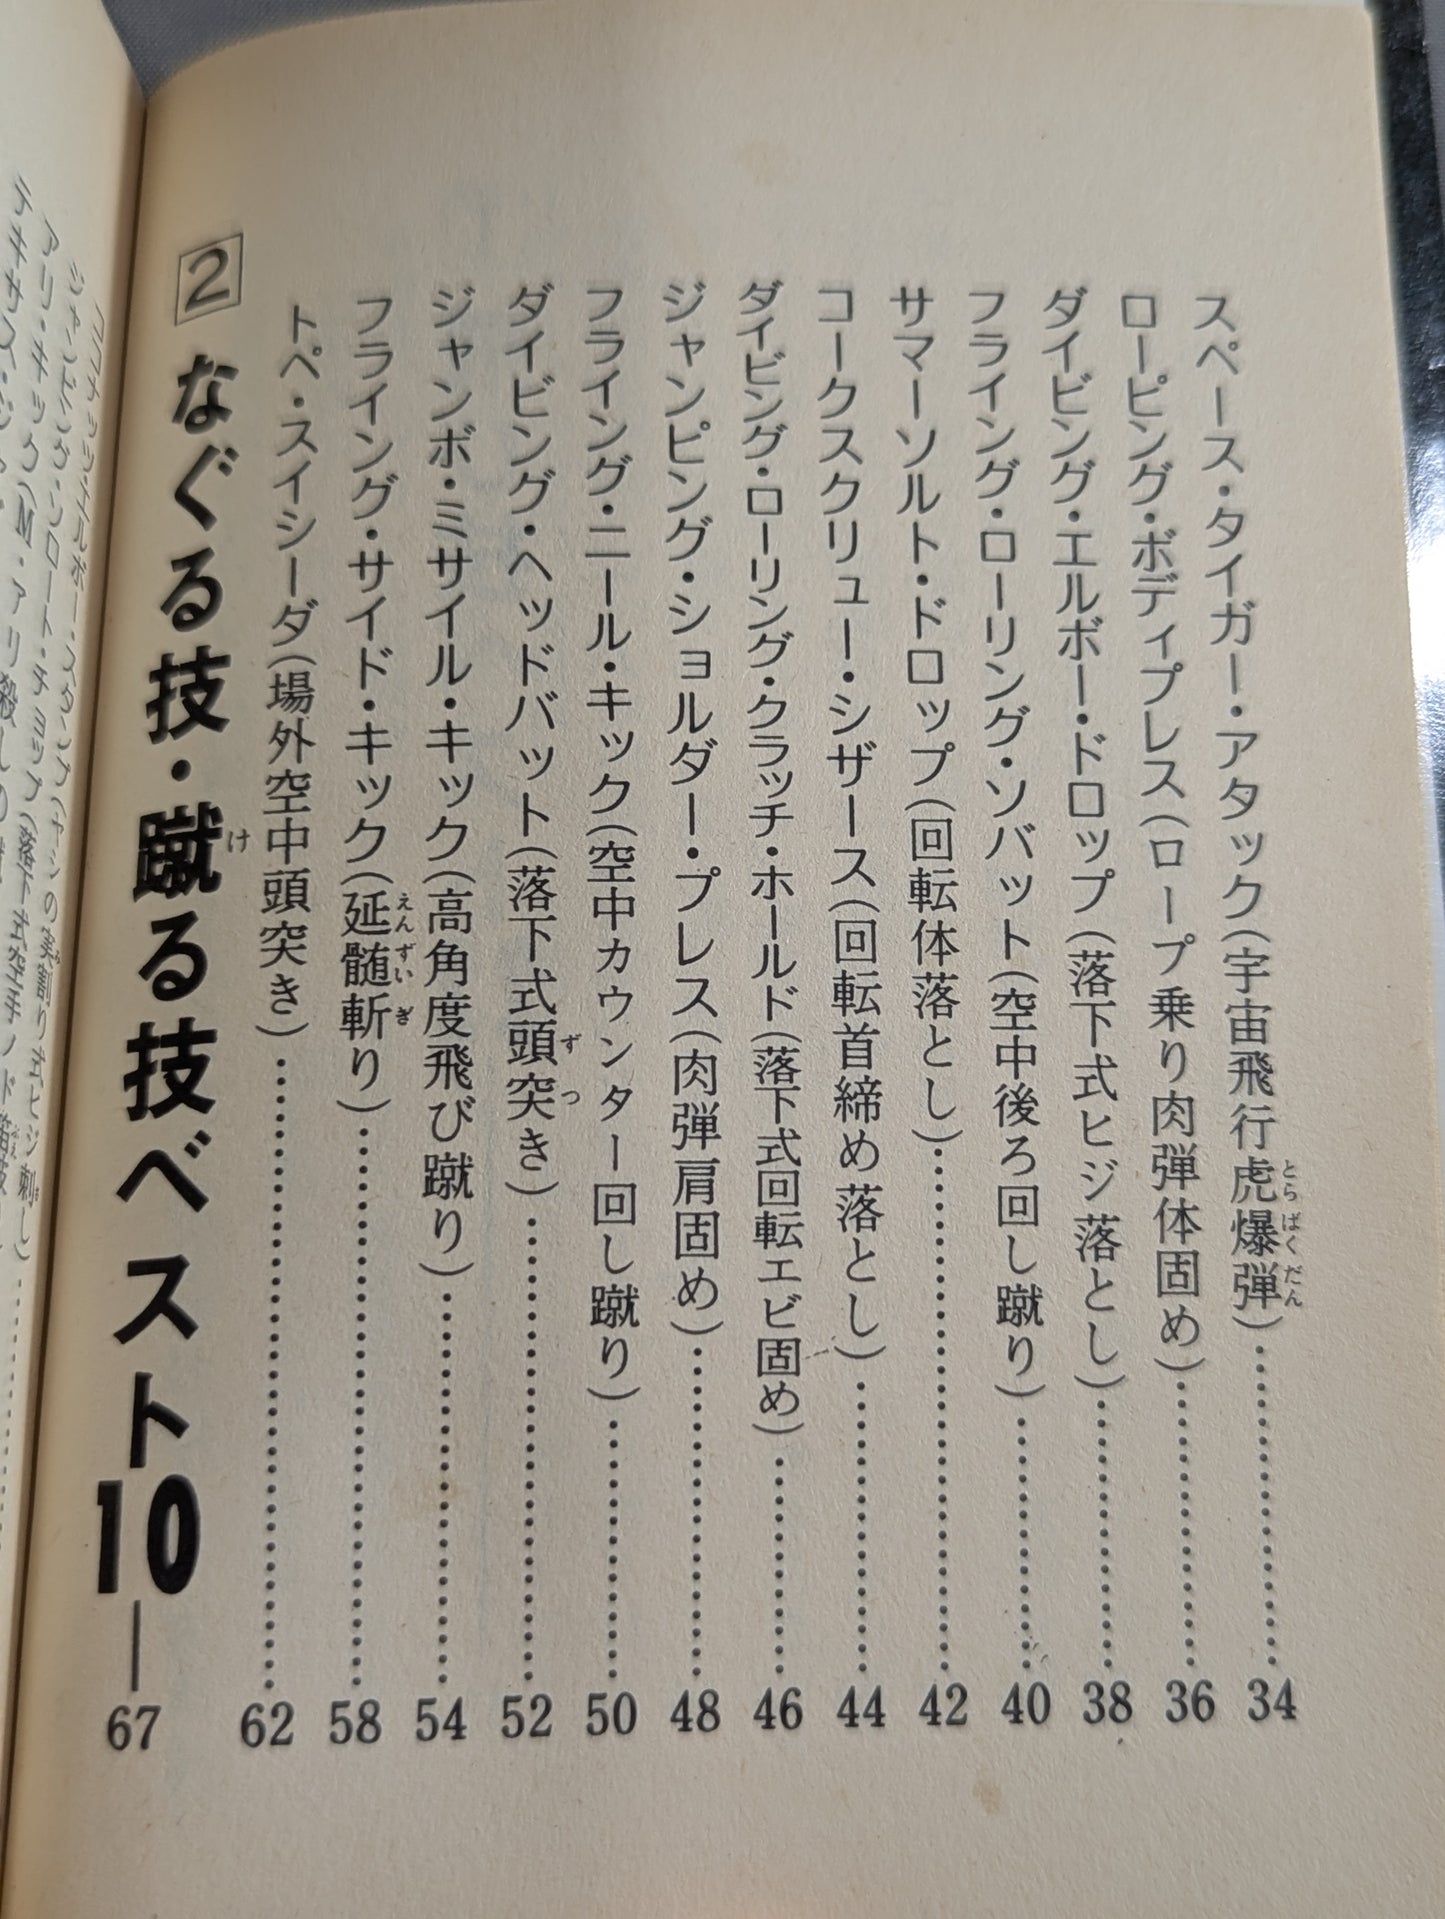 スペース・タイガー・アタック(宇宙飛行虎爆弾)……34
ローピング・ボディプレス(ロープ乗り肉弾体固め)……36
ダイビング・エルボー・ドロップ(落下式ヒジ落とし)……38
フライング・ローリング・ソバット(空中後ろ回し蹴り)……40
サマーソルト・ドロップ(回転体落とし)……42
コークスクリュー・シザース(回転首締め落とし)……44
ダイビング・ローリング・クラッチ・ホールド(落下式回転エビ固め)……46
ジャンピング・ショルダー・プレス(肉弾肩固め)……48
フライング・ニール・キック(空中カウンター回し蹴り)……50
ダイビング・ヘッドバット(落下式頭突き)……52
ジャンボ・ミサイル・キック(高角度飛び蹴り)……54
フライング・サイド・キック(延髄斬り)……58
トペ・スイシーダ(場外空中頭突き)……62
2 なぐる技・蹴る技ベスト10―67